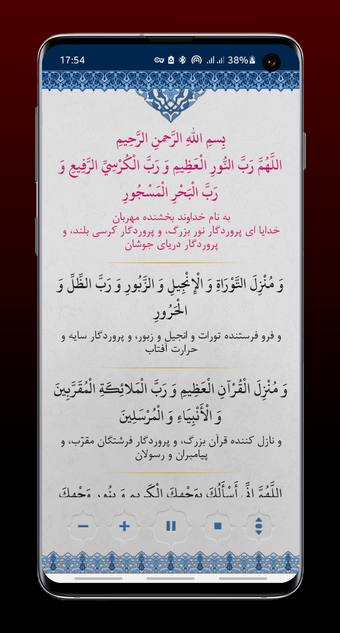 17:54
38%
بِسمِ اللهِ الرَّحمنِ الرَّحِيمِ
اللَّهُمَّ رَبَّ النُّورِ الْعَظِيمِ وَ رَبَّ الْكُرْسِيِّ الرَّفِيعِ وَ
رَبَّ الْبَحْرِ الْمَسْجُورِ
به نام خداوند بخشنده مهربان
خدایا ای پروردگار نور بزرگ، و پروردگار کرسی بلند، و
پروردگار دریای جوشان
وَ مُنْزِلَ التَّوْرَاةِ وَ الْإِنْجِيلِ وَ الزَّبُورِ وَ رَبَّ الظِّلِّ وَ
الْحَرُورِ
و فرو فرستنده تورات و انجیل و زبور، و پروردگار سایه و
حرارت آفتاب
وَ مُنْزِلَ الْقُرْآنِ الْعَظِيمِ وَ رَبَّ الْمَلائِكَةِ الْمُقَرَّبِينَ
وَ الْأَنْبِيَاءِ وَ الْمُرْسَلِينَ
و نازل کننده قرآن بزرگ، و پروردگار فرشتگان مقرّب، و
پیامبران و رسولان
اللَّهُمَّ إِنِّي أَسْأَلُكَ بِوَجْهِكَ الْكَرِيمِ وَ بِنُورِ وَجْهِكَ